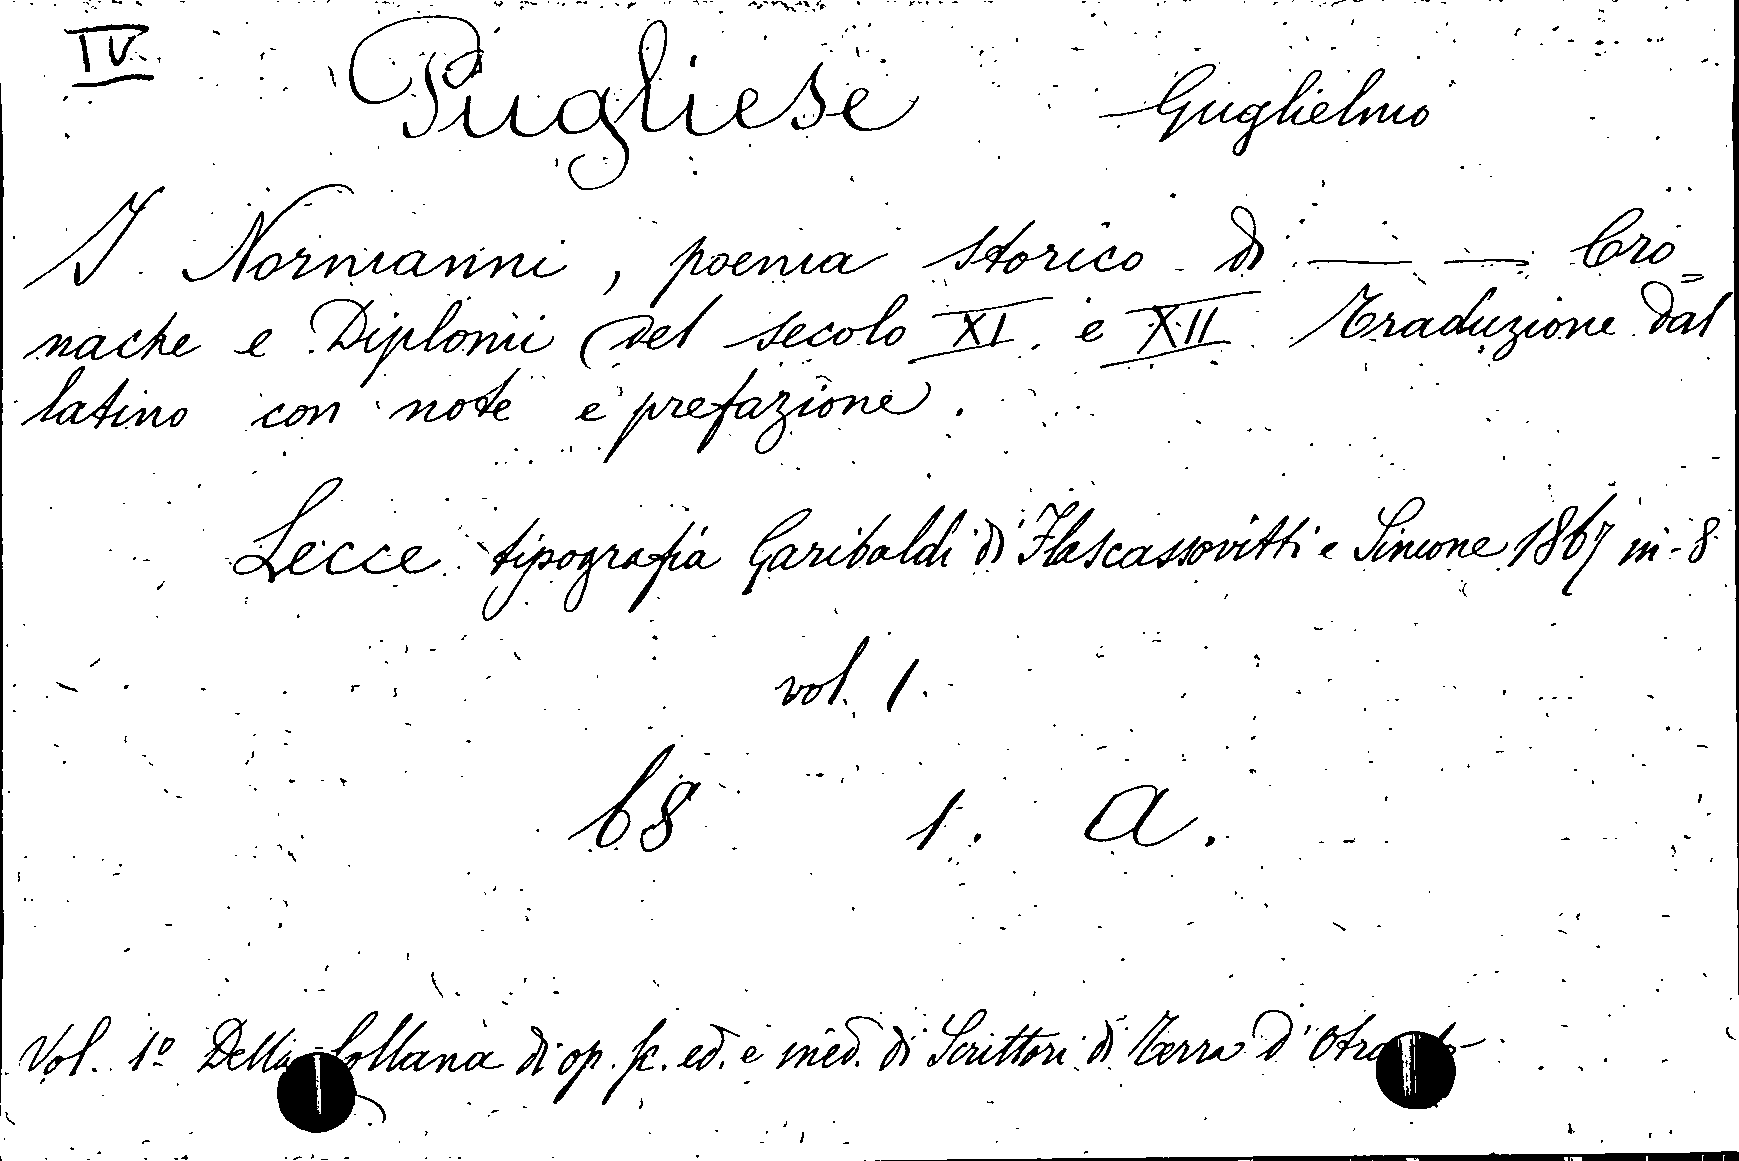 IV.
Pugliese Guglielmo
I Normanni, poema storico di — — Cro=
nache e Diplomi del secolo XI. e XII. Traduzione dal
latino con note e prefazione.
Lecce tipografia Garibaldi di Flascassovitti e Simone 1867 in-8.
vol. 1.
68 1. A.
Vol. 1º Della Collana di op. sc. ed. e ined. di Scrittori di Terra d'Otranto